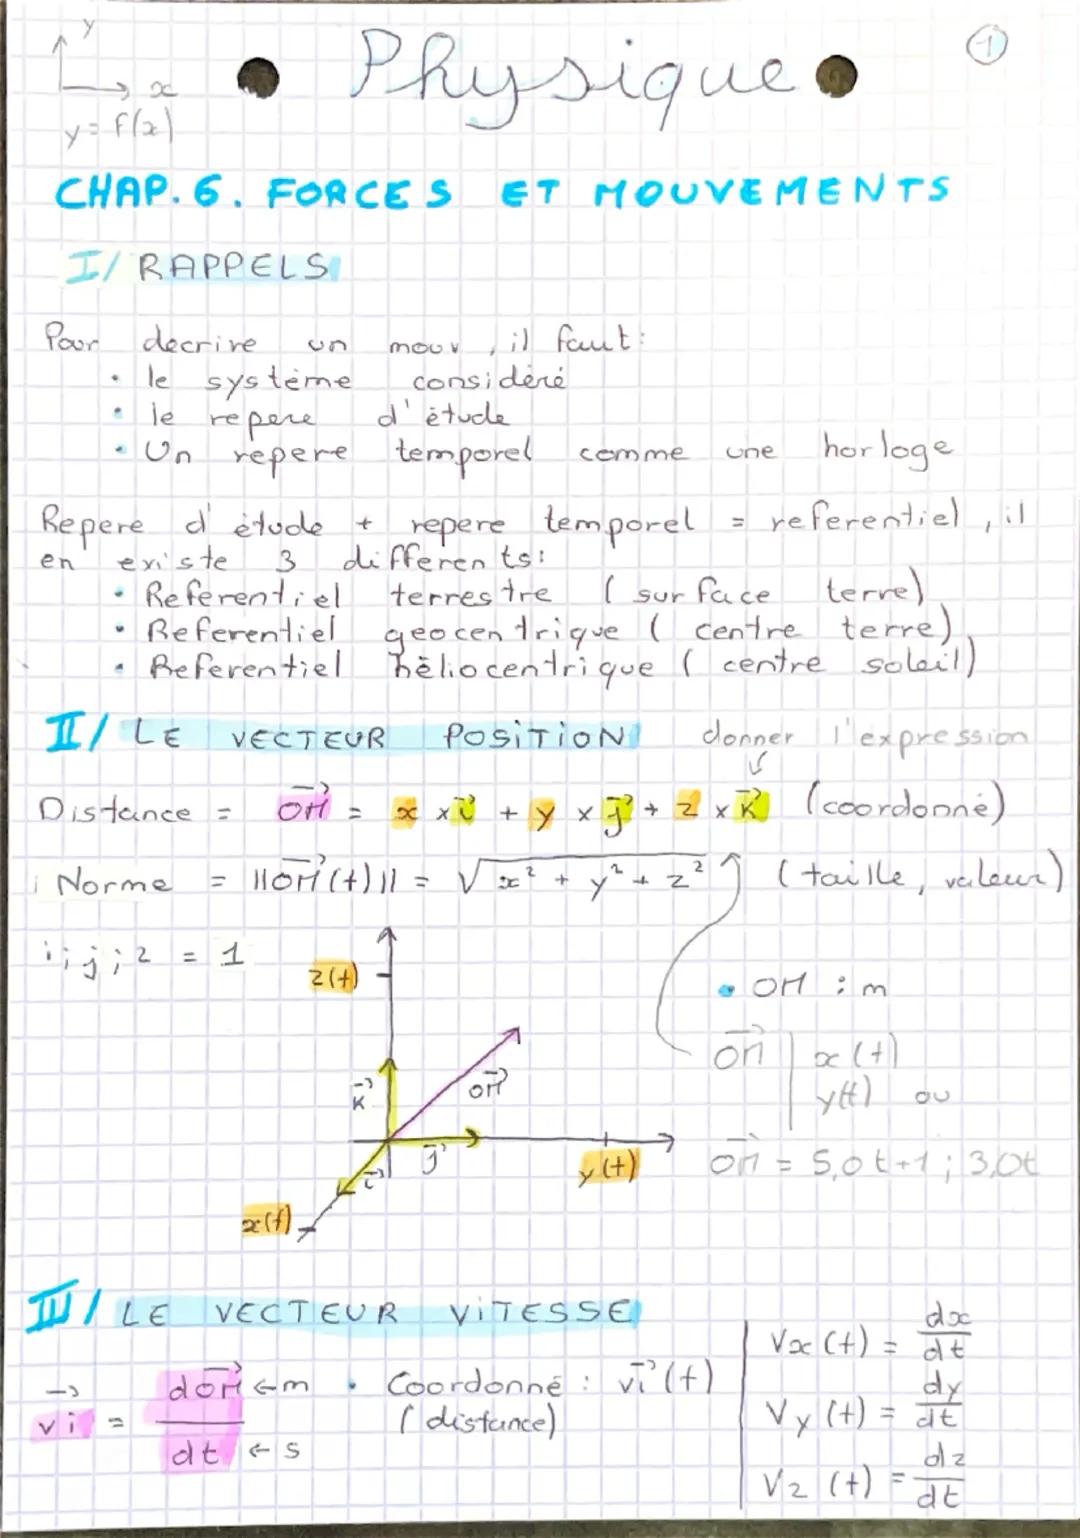 y
x
y = f(x)
Physique
1
CHAP. 6. FORCES ET MOUVEMENTS
I/ RAPPELS
Pour decrire un mouv, il faut:
• le système considéré
• le repere d'étude
• Un repere temporel comme une horloge
Repere d'étude + repere temporel = referentiel, il
en existe 3 differents:
• Referentiel terrestre (surface terre)
• Referentiel geocentrique (centre terre)
• Referentiel héliocentrique (centre soleil)
II/ LE VECTEUR POSITION donner l'expression
Distance = \vec{OM} = x × \vec{i} + y × \vec{j} + z × \vec{K} (coordonné)
Norme = ||\vec{OM}(t)|| = √(x² + y² + z²) (taille, valeur)
i; j; z = 1
z(t)
• OM : m
\vec{OM} | x(t)
y(t) ou
\vec{K}
\vec{OM}
\vec{j}
y(t)
\vec{OM} = 5,0t+1 ; 3,0t
\vec{i}
x(t)
III/ LE VECTEUR VITESSE
\vec{vi} = d\vec{OM} / dt
← m
← s
• Coordonné : \vec{vi}(t)
(distance)
Vx(t) = dx/dt
Vy(t) = dy/dt
Vz(t) = dz/dt